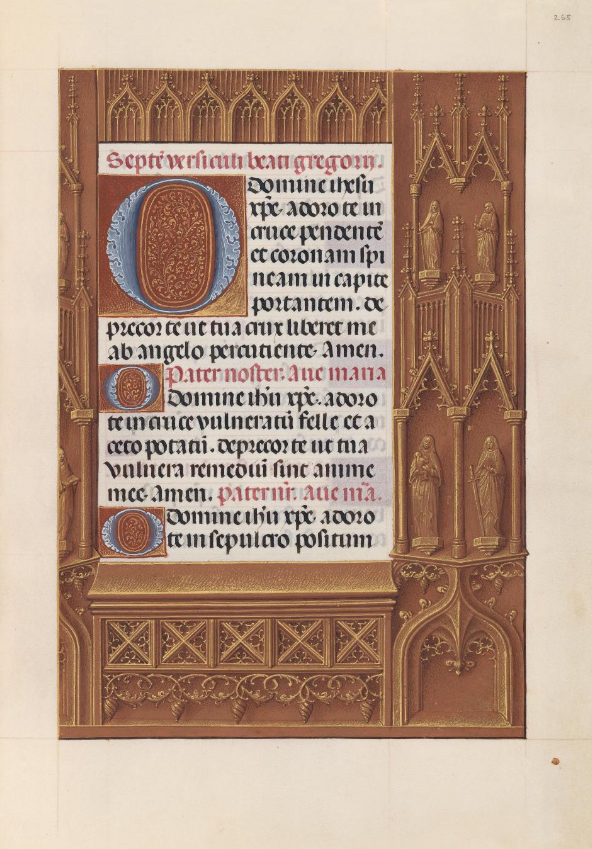 265
Septē versiculi beati gregorii.
O domine ihesu
xp̄e. adoro te in
cruce pendentē
et coronam spi
neam in capite
portantem. de
precor te ut tua crux liberet me
ab angelo percutiente. Amen.
Pater noster. Aue maria
O domine ihū xp̄e. adoro
te in cruce vulneratū felle et a
ceto potatū. deprecor te ut tua
vulnera remediū sint anime
mee. Amen. pater nr̄. Aue mā.
O domine ihū xp̄e. adoro
te in sepulcro positum